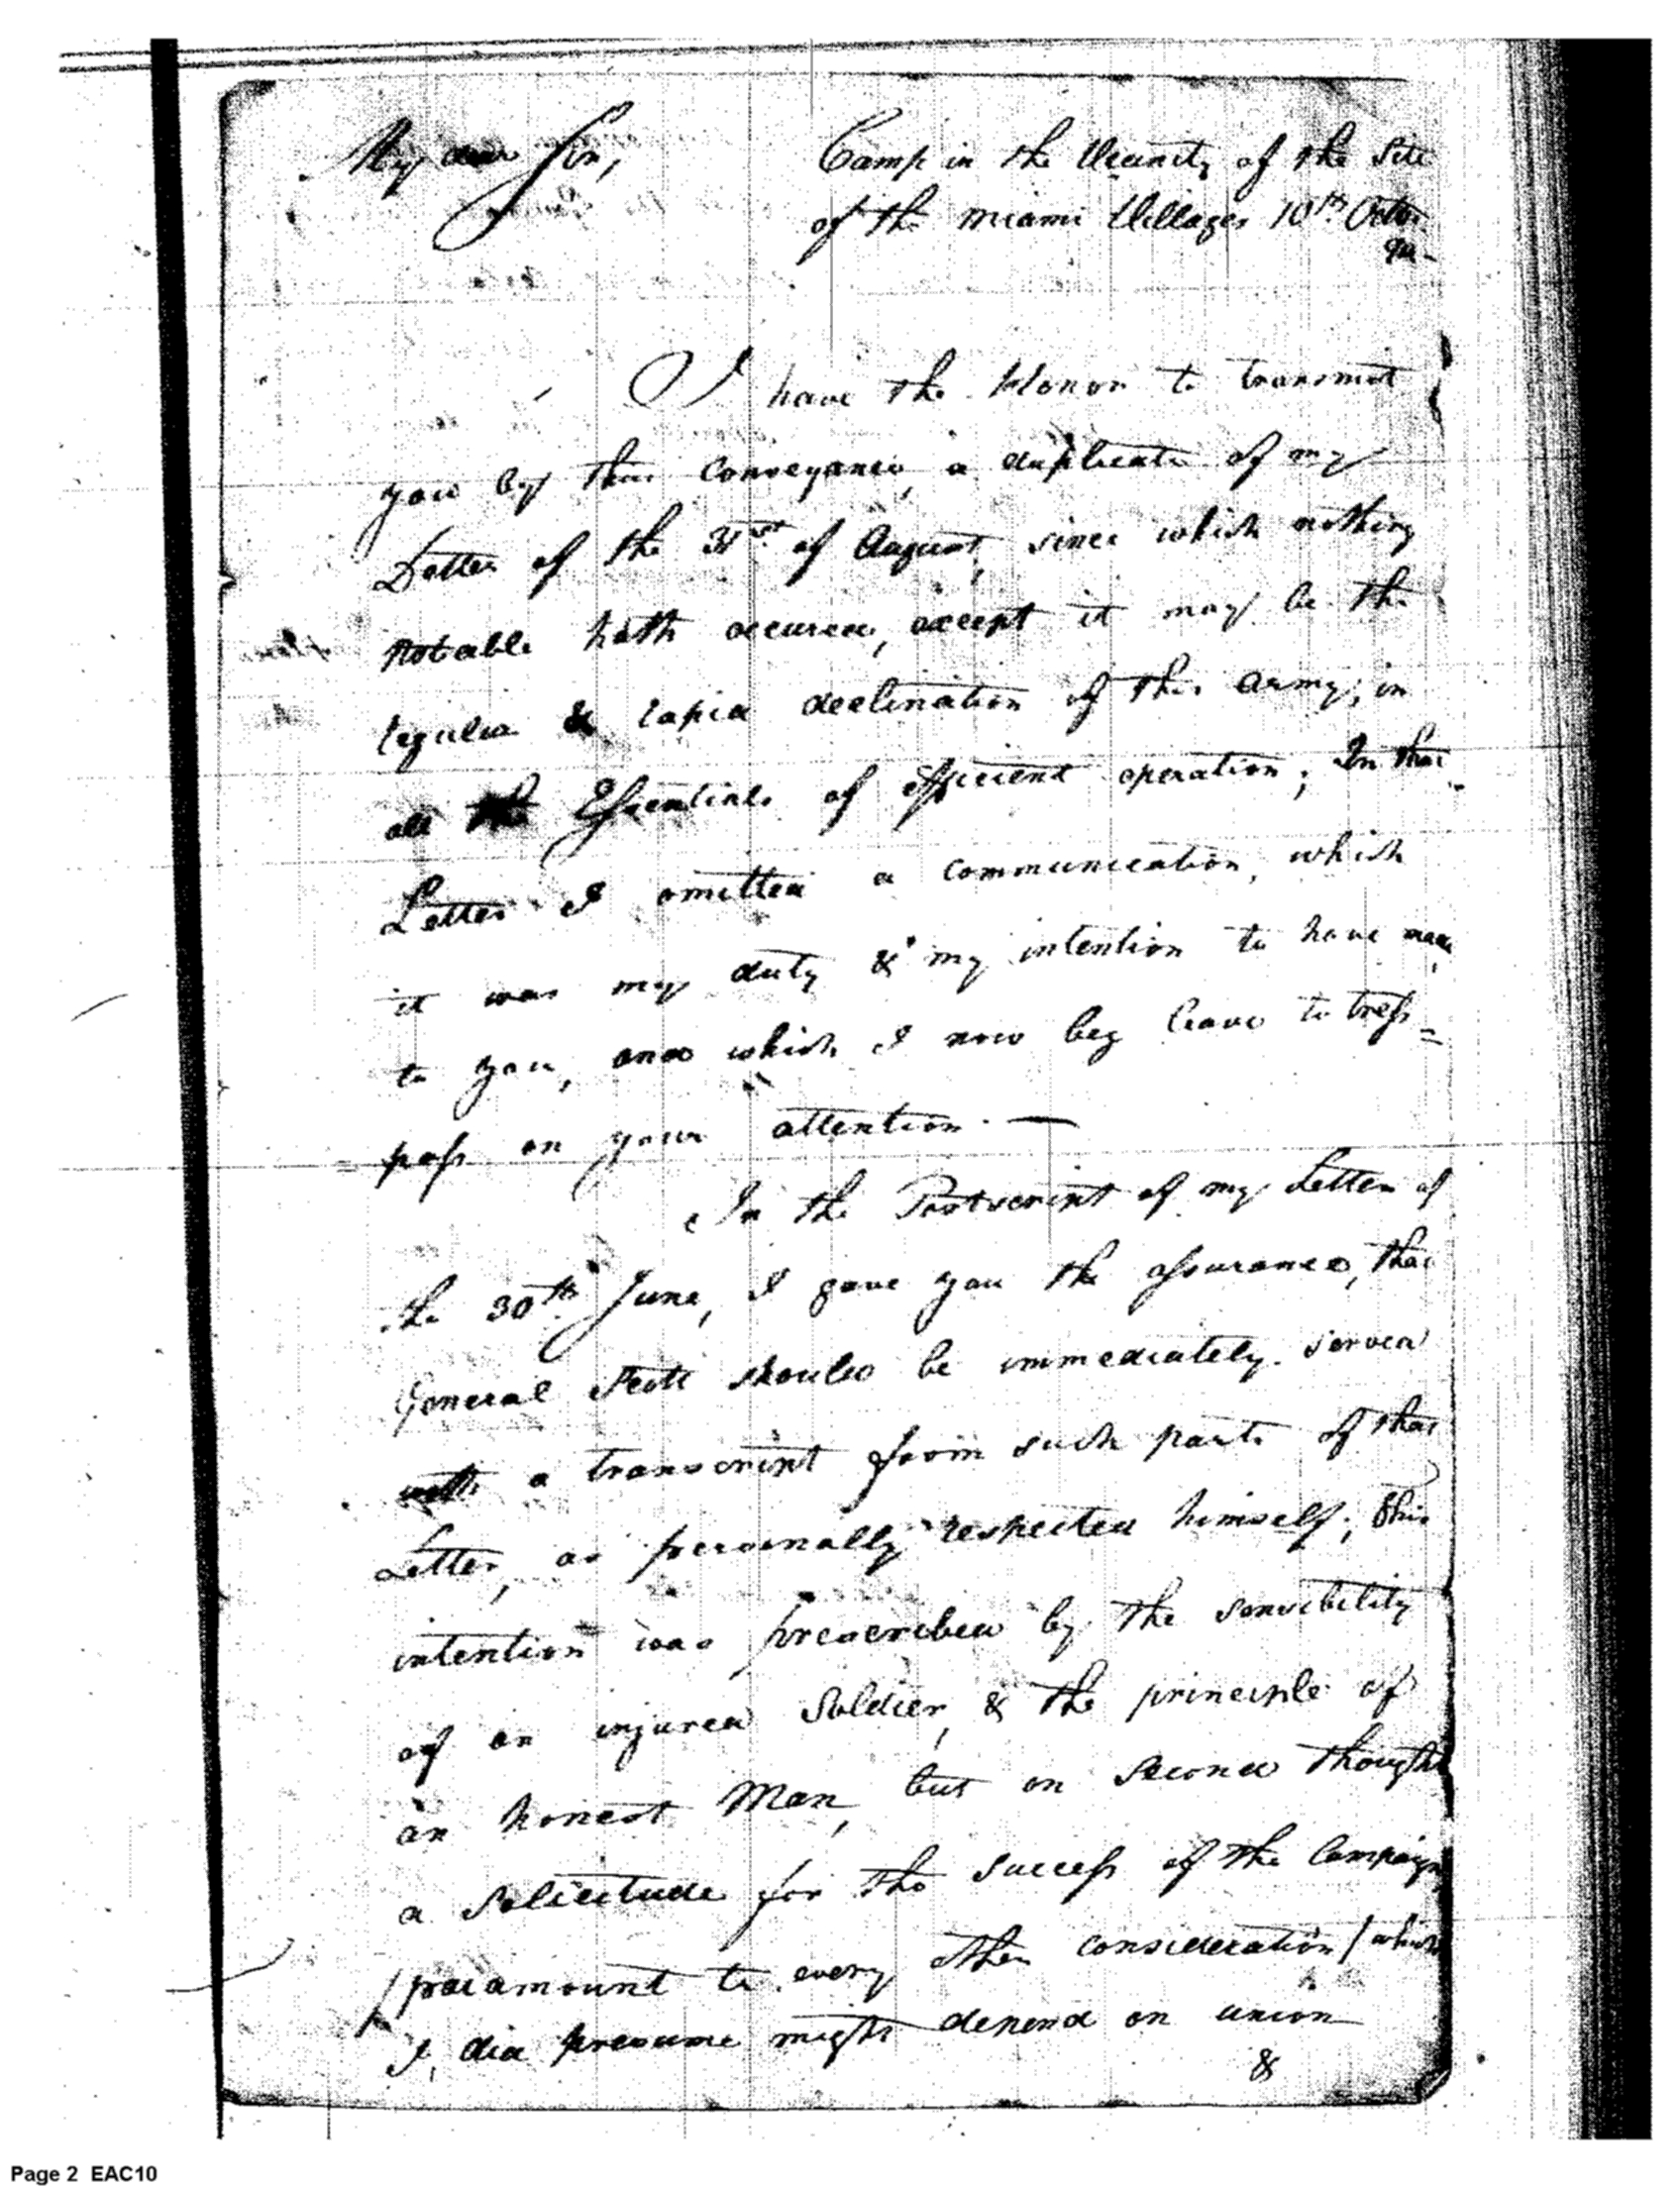 My dear Sir,
Camp in the Vicinity of the Site
of the Miami Villages 10th Octor.
94-
I have the Honor to transmit
you by this conveyance, a duplicate of my
Letter of the 31st of August, since which nothing
notable hath occured, except it may be the
regular & rapid declination of this army, in
all the Essentials of efficient operation; In that
Letter I omitted a communication, which
it was my duty & my intention to have made
to you, and which I now beg leave to tress=
=pass on your attention.—
In the Postscript of my Letter of
the 30th June, I gave you the assurance, that
General Scott should be immediately served
with a transcript from such parts of that
Letter, as personally respected himself; this
intention was prescribed by the sensibility
of an injured Soldier, & the principle of
an honest Man, but on second thought
a Solicitude for the success of the Campaign
/paramount to every other consideration/ which
I did presume might depend on union
&
Page 2 EAC10